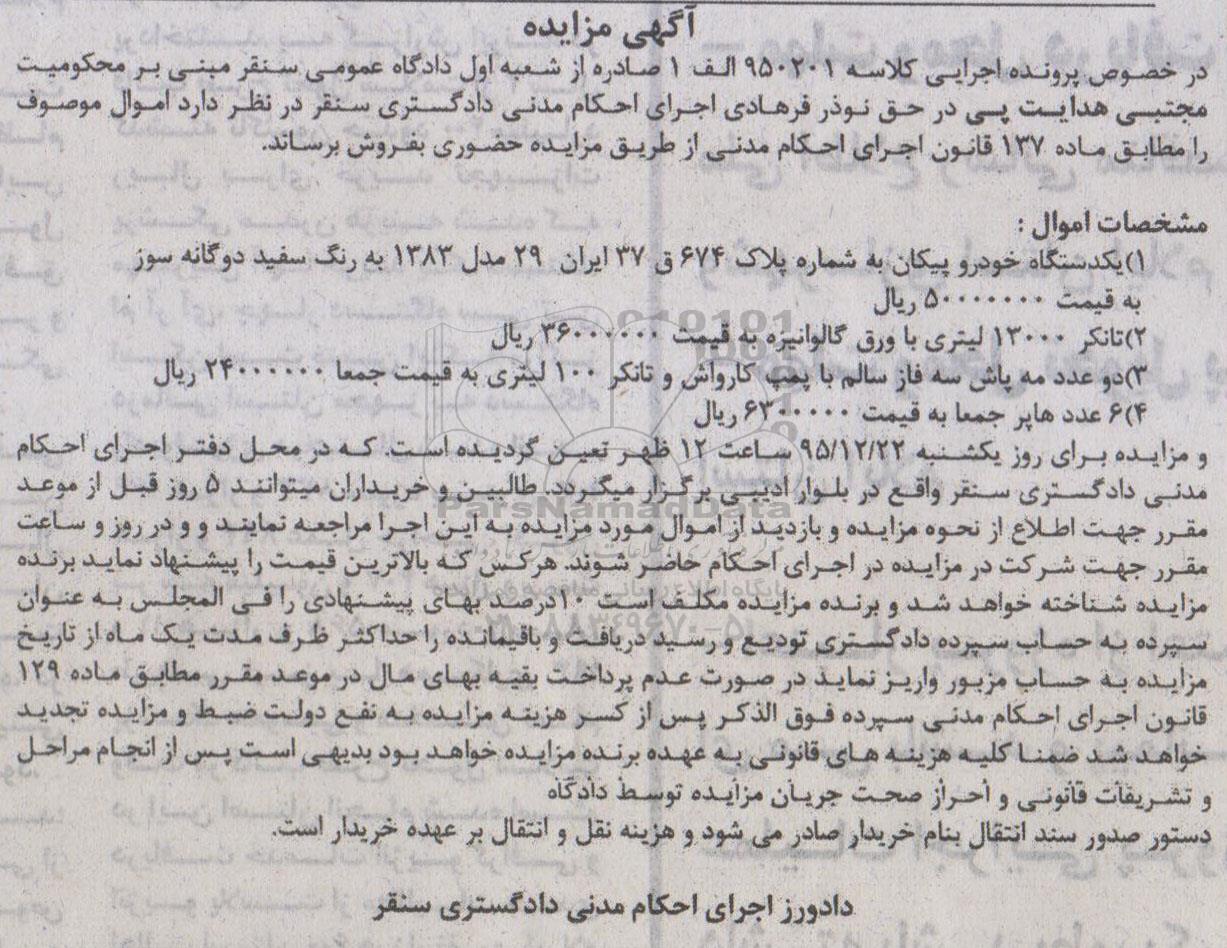 آگهی مزایده
در خصوص پرونده اجرایی کلاسه ۹۵۰۲۰۱ الف ۱ صادره از شعبه اول دادگاه عمومی سنقر مبنی بر محکومیت
مجتبی هدایت پی در حق نوذر فرهادی اجرای احکام مدنی دادگستری سنقر در نظر دارد اموال موصوف
را مطابق ماده ۱۳۷ قانون اجرای احکام مدنی از طریق مزایده حضوری بفروش برساند.
مشخصات اموال :
۱)یکدستگاه خودرو پیکان به شماره پلاک ۶۷۴ ق ۳۷ ایران ۲۹ مدل ۱۳۸۳ به رنگ سفید دوگانه سوز
به قیمت ۵۰۰۰۰۰۰۰ ریال
۲)تانکر ۱۳۰۰۰ لیتری با ورق گالوانیزه به قیمت ۳۶۰۰۰۰۰۰ ریال
۳)دو عدد مه پاش سه فاز سالم با پمپ کارواش و تانکر ۱۰۰ لیتری به قیمت جمعا ۲۴۰۰۰۰۰۰ ریال
۴)۶ عدد هاپر جمعا به قیمت ۶۳۰۰۰۰۰ ریال
و مزایده برای روز یکشنبه ۹۵/۱۲/۲۲ ساعت ۱۲ ظهر تعین گردیده است. که در محل دفتر اجرای احکام
مدنی دادگستری سنقر واقع در بلوار ادیبی برگزار میگردد. طالبین و خریداران میتوانند ۵ روز قبل از موعد
مقرر جهت اطلاع از نحوه مزایده و بازدید از اموال مورد مزایده به این اجرا مراجعه نمایند و و در روز و ساعت
مقرر جهت شرکت در مزایده در اجرای احکام حاضر شوند. هرکس که بالاترین قیمت را پیشنهاد نماید برنده
مزایده شناخته خواهد شد و برنده مزایده مکلف است ۱۰درصد بهای پیشنهادی را فی المجلس به عنوان
سپرده به حساب سپرده دادگستری تودیع و رسید دریافت و باقیمانده را حداکثر ظرف مدت یک ماه از تاریخ
مزایده به حساب مزبور واریز نماید در صورت عدم پرداخت بقیه بهای مال در موعد مقرر مطابق ماده ۱۲۹
قانون اجرای احکام مدنی سپرده فوق الذکر پس از کسر هزینه مزایده به نفع دولت ضبط و مزایده تجدید
خواهد شد ضمنا کلیه هزینه های قانونی به عهده برنده مزایده خواهد بود بدیهی است پس از انجام مراحل
و تشریفات قانونی و احراز صحت جریان مزایده توسط دادگاه
دستور صدور سند انتقال بنام خریدار صادر می شود و هزینه نقل و انتقال بر عهده خریدار است.
دادورز اجرای احکام مدنی دادگستری سنقر
ParsNamadData